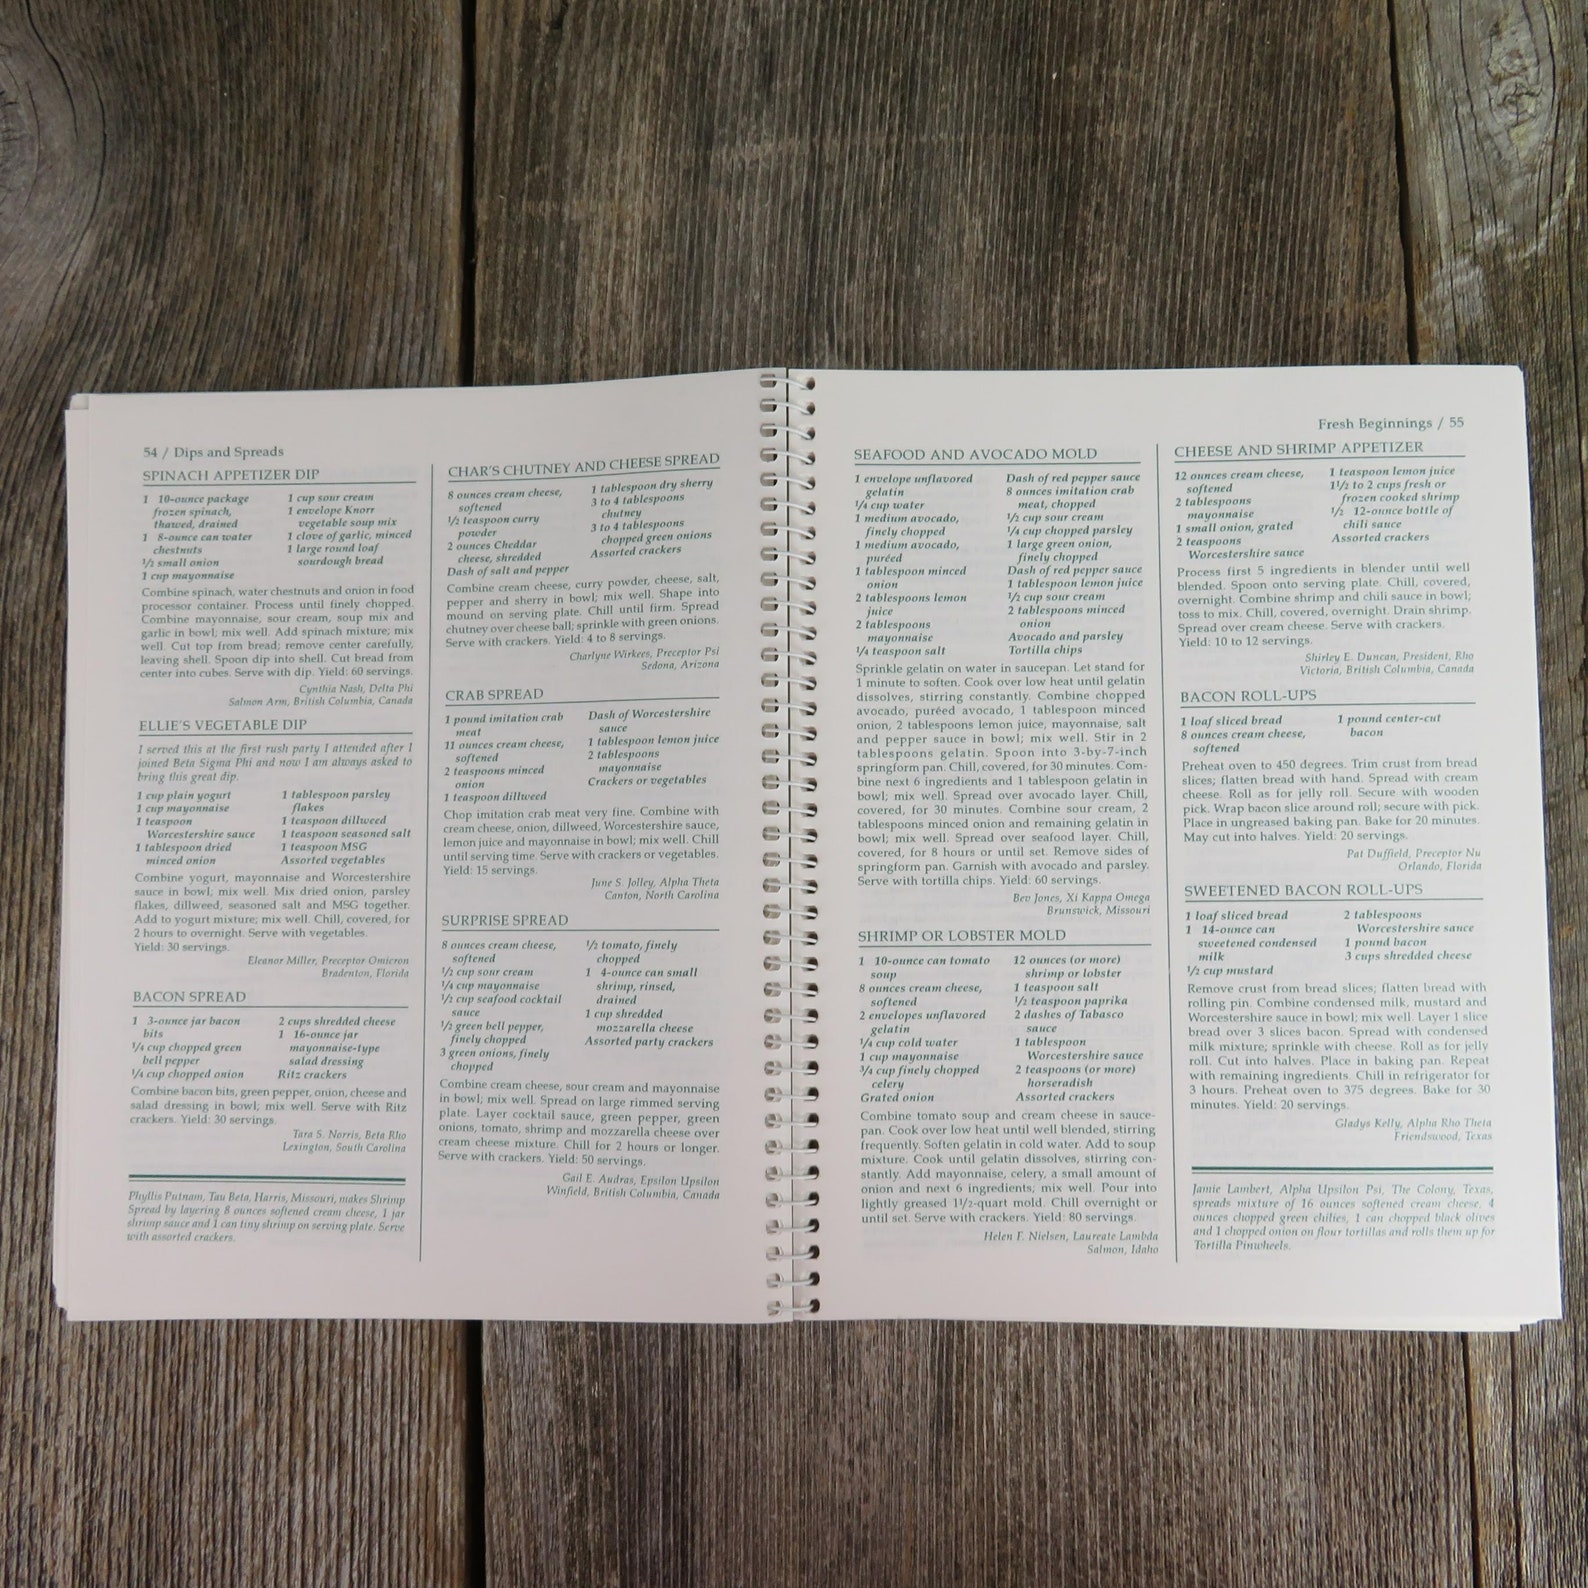 54 / Dips and Spreads
SPINACH APPETIZER DIP
1 10-ounce package
frozen spinach,
thawed, drained
1 8-ounce can water
chestnuts
1/2 small onion
1 cup mayonnaise
1 cup sour cream
1 envelope Knorr
vegetable soup mix
1 clove of garlic, minced
1 large round loaf
sourdough bread
Combine spinach, water chestnuts and onion in food
processor container. Process until finely chopped.
Combine mayonnaise, sour cream, soup mix and
garlic in bowl; mix well. Add spinach mixture; mix
well. Cut top from bread; remove center carefully,
leaving shell. Spoon dip into shell. Cut bread from
center into cubes. Serve with dip. Yield: 60 servings.
Cynthia Nash, Delta Phi
Salmon Arm, British Columbia, Canada
ELLIE'S VEGETABLE DIP
I served this at the first rush party I attended after I
joined Beta Sigma Phi and now I am always asked to
bring this great dip.
1 cup plain yogurt
1 cup mayonnaise
1 teaspoon
Worcestershire sauce
1 tablespoon dried
minced onion
1 tablespoon parsley
flakes
1 teaspoon dillweed
1 teaspoon seasoned salt
1 teaspoon MSG
Assorted vegetables
Combine yogurt, mayonnaise and Worcestershire
sauce in bowl; mix well. Mix dried onion, parsley
flakes, dillweed, seasoned salt and MSG together.
Add to yogurt mixture; mix well. Chill, covered, for
2 hours to overnight. Serve with vegetables.
Yield: 30 servings.
Eleanor Miller, Preceptor Omicron
Bradenton, Florida
BACON SPREAD
1 3-ounce jar bacon
bits
1/4 cup chopped green
bell pepper
1/4 cup chopped onion
2 cups shredded cheese
1 16-ounce jar
mayonnaise-type
salad dressing
Ritz crackers
Combine bacon bits, green pepper, onion, cheese and
salad dressing in bowl; mix well. Serve with Ritz
crackers. Yield: 30 servings.
Tara S. Norris, Beta Rho
Lexington, South Carolina
Phyllis Putnam, Tau Beta, Harris, Missouri, makes Shrimp
Spread by layering 8 ounces softened cream cheese, 1 jar
shrimp sauce and 1 can tiny shrimp on serving plate. Serve
with assorted crackers.
CHAR'S CHUTNEY AND CHEESE SPREAD
8 ounces cream cheese,
softened
1/2 teaspoon curry
powder
2 ounces Cheddar
cheese, shredded
Dash of salt and pepper
1 tablespoon dry sherry
3 to 4 tablespoons
chutney
3 to 4 tablespoons
chopped green onions
Assorted crackers
Combine cream cheese, curry powder, cheese, salt,
pepper and sherry in bowl; mix well. Shape into
mound on serving plate. Chill until firm. Spread
chutney over cheese ball; sprinkle with green onions.
Serve with crackers. Yield: 4 to 8 servings.
Charlyne Wirkees, Preceptor Psi
Sedona, Arizona
CRAB SPREAD
1 pound imitation crab
meat
11 ounces cream cheese,
softened
2 teaspoons minced
onion
1 teaspoon dillweed
Dash of Worcestershire
sauce
1 tablespoon lemon juice
2 tablespoons
mayonnaise
Crackers or vegetables
Chop imitation crab meat very fine. Combine with
cream cheese, onion, dillweed, Worcestershire sauce,
lemon juice and mayonnaise in bowl; mix well. Chill
until serving time. Serve with crackers or vegetables.
Yield: 15 servings.
June S. Jolley, Alpha Theta
Canton, North Carolina
SURPRISE SPREAD
8 ounces cream cheese,
softened
1/2 cup sour cream
1/4 cup mayonnaise
1/2 cup seafood cocktail
sauce
1/2 green bell pepper,
finely chopped
3 green onions, finely
chopped
1/2 tomato, finely
chopped
1 4-ounce can small
shrimp, rinsed,
drained
1 cup shredded
mozzarella cheese
Assorted party crackers
Combine cream cheese, sour cream and mayonnaise
in bowl; mix well. Spread on large rimmed serving
plate. Layer cocktail sauce, green pepper, green
onions, tomato, shrimp and mozzarella cheese over
cream cheese mixture. Chill for 2 hours or longer.
Serve with crackers. Yield: 50 servings.
Gail E. Audras, Epsilon Upsilon
Winfield, British Columbia, Canada
Fresh Beginnings / 55
SEAFOOD AND AVOCADO MOLD
1 envelope unflavored
gelatin
1/4 cup water
1 medium avocado,
finely chopped
1 medium avocado,
puréed
1 tablespoon minced
onion
2 tablespoons lemon
juice
2 tablespoons
mayonnaise
1/4 teaspoon salt
Dash of red pepper sauce
8 ounces imitation crab
meat, chopped
1/2 cup sour cream
1/4 cup chopped parsley
1 large green onion,
finely chopped
Dash of red pepper sauce
1 tablespoon lemon juice
1/2 cup sour cream
2 tablespoons minced
onion
Avocado and parsley
Tortilla chips
Sprinkle gelatin on water in saucepan. Let stand for
1 minute to soften. Cook over low heat until gelatin
dissolves, stirring constantly. Combine chopped
avocado, puréed avocado, 1 tablespoon minced
onion, 2 tablespoons lemon juice, mayonnaise, salt
and pepper sauce in bowl; mix well. Stir in 2
tablespoons gelatin. Spoon into 3-by-7-inch
springform pan. Chill, covered, for 30 minutes. Com-
bine next 6 ingredients and 1 tablespoon gelatin in
bowl; mix well. Spread over avocado layer. Chill,
covered, for 30 minutes. Combine sour cream, 2
tablespoons minced onion and remaining gelatin in
bowl; mix well. Spread over seafood layer. Chill,
covered, for 8 hours or until set. Remove sides of
springform pan. Garnish with avocado and parsley.
Serve with tortilla chips. Yield: 60 servings.
Bev Jones, Xi Kappa Omega
Brunswick, Missouri
SHRIMP OR LOBSTER MOLD
1 10-ounce can tomato
soup
8 ounces cream cheese,
softened
2 envelopes unflavored
gelatin
1/4 cup cold water
1 cup mayonnaise
3/4 cup finely chopped
celery
Grated onion
12 ounces (or more)
shrimp or lobster
1 teaspoon salt
1/2 teaspoon paprika
2 dashes of Tabasco
sauce
1 tablespoon
Worcestershire sauce
2 teaspoons (or more)
horseradish
Assorted crackers
Combine tomato soup and cream cheese in sauce-
pan. Cook over low heat until well blended, stirring
frequently. Soften gelatin in cold water. Add to soup
mixture. Cook until gelatin dissolves, stirring con-
stantly. Add mayonnaise, celery, a small amount of
onion and next 6 ingredients; mix well. Pour into
lightly greased 1 1/2-quart mold. Chill overnight or
until set. Serve with crackers. Yield: 80 servings.
Helen F. Nielsen, Laureate Lambda
Salmon, Idaho
CHEESE AND SHRIMP APPETIZER
12 ounces cream cheese,
softened
2 tablespoons
mayonnaise
1 small onion, grated
2 teaspoons
Worcestershire sauce
1 teaspoon lemon juice
1 1/2 to 2 cups fresh or
frozen cooked shrimp
1/2 12-ounce bottle of
chili sauce
Assorted crackers
Process first 5 ingredients in blender until well
blended. Spoon onto serving plate. Chill, covered,
overnight. Combine shrimp and chili sauce in bowl;
toss to mix. Chill, covered, overnight. Drain shrimp.
Spread over cream cheese. Serve with crackers.
Yield: 10 to 12 servings.
Shirley E. Duncan, President, Rho
Victoria, British Columbia, Canada
BACON ROLL-UPS
1 loaf sliced bread
8 ounces cream cheese,
softened
1 pound center-cut
bacon
Preheat oven to 450 degrees. Trim crust from bread
slices; flatten bread with hand. Spread with cream
cheese. Roll as for jelly roll. Secure with wooden
pick. Wrap bacon slice around roll; secure with pick.
Place in ungreased baking pan. Bake for 20 minutes.
May cut into halves. Yield: 20 servings.
Pat Duffield, Preceptor Nu
Orlando, Florida
SWEETENED BACON ROLL-UPS
1 loaf sliced bread
1 14-ounce can
sweetened condensed
milk
1/2 cup mustard
2 tablespoons
Worcestershire sauce
1 pound bacon
3 cups shredded cheese
Remove crust from bread slices; flatten bread with
rolling pin. Combine condensed milk, mustard and
Worcestershire sauce in bowl; mix well. Layer 1 slice
bread over 3 slices bacon. Spread with condensed
milk mixture; sprinkle with cheese. Roll as for jelly
roll. Cut into halves. Place in baking pan. Repeat
with remaining ingredients. Chill in refrigerator for
3 hours. Preheat oven to 375 degrees. Bake for 30
minutes. Yield: 20 servings.
Gladys Kelly, Alpha Rho Theta
Friendswood, Texas
Jamie Lambert, Alpha Upsilon Psi, The Colony, Texas,
spreads mixture of 16 ounces softened cream cheese, 4
ounces chopped green chilies, 1 can chopped black olives
and 1 chopped onion on flour tortillas and rolls them up for
Tortilla Pinwheels.